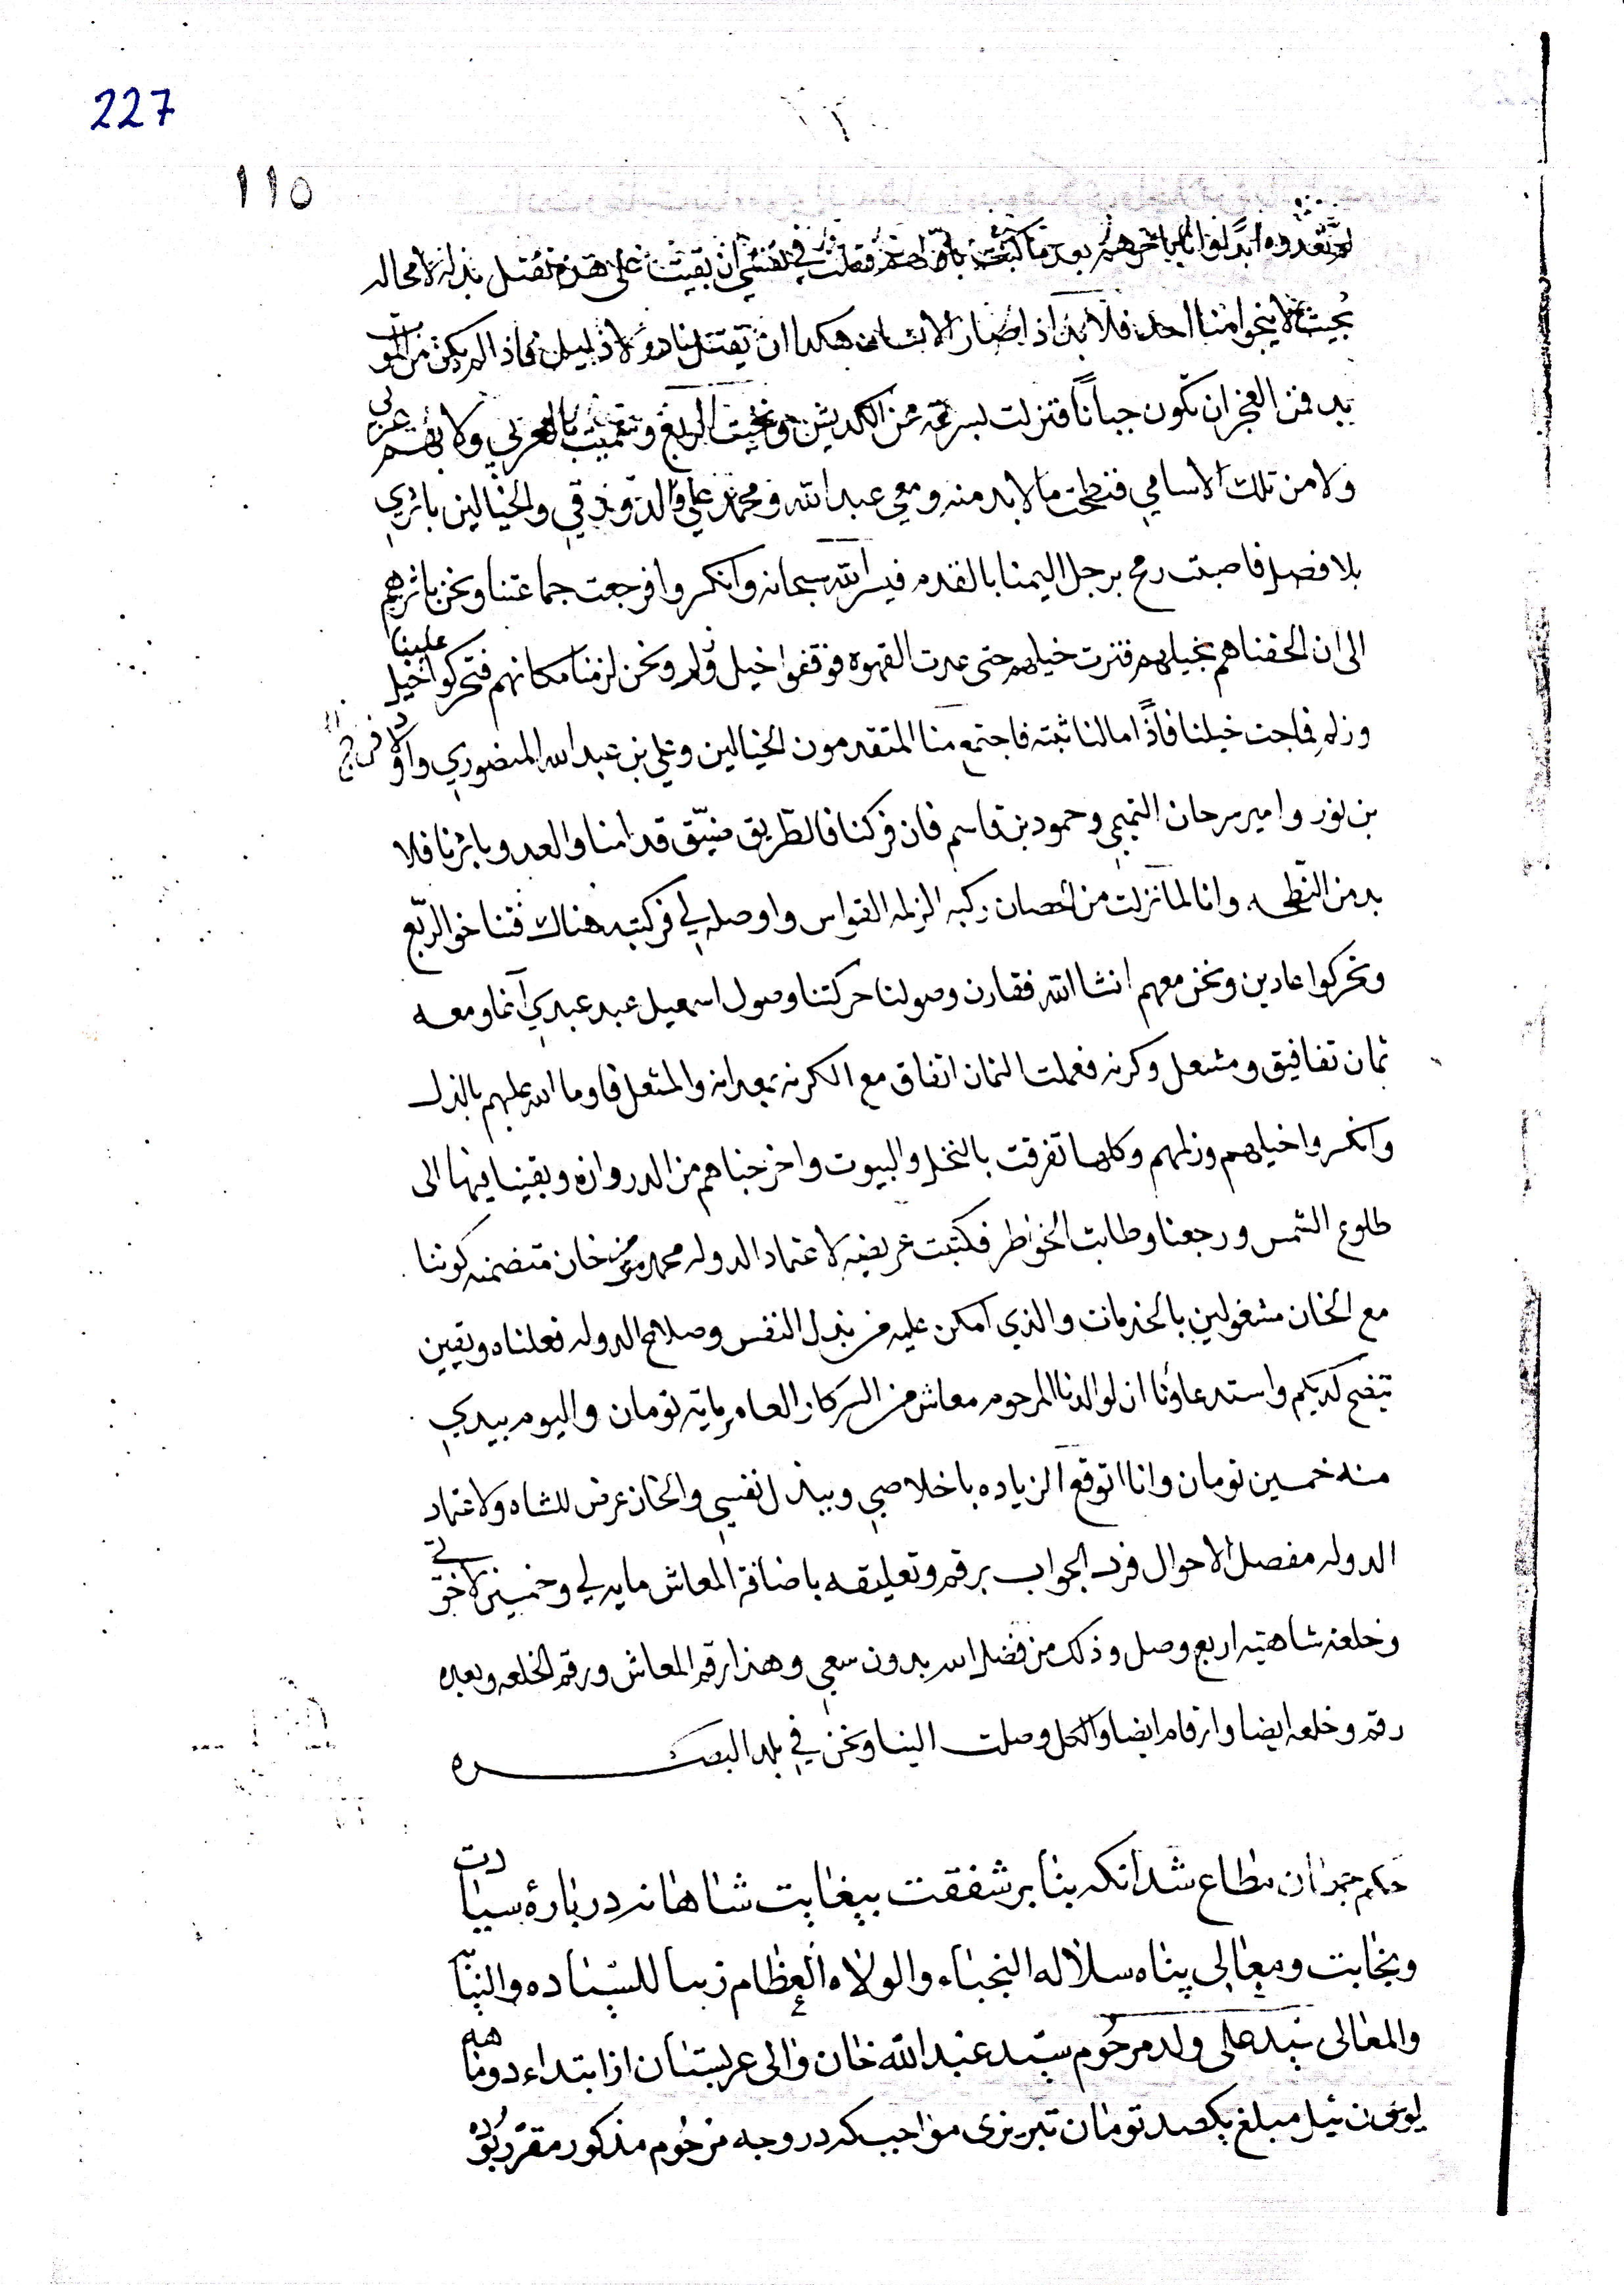 227
١١٥
ابدا لو انا باثرهم بعد ما في نفسي ان بقيت على هذه نقتل بذله لا محاله
بحيث لا ينجوا منا احد فلا بد اذا صار الانسان هكذا ان يقتل ولا ذليل فاذا لم يكن من الموت
بد فمن العجز ان تكون جبانا فنزلت بسرعه من الكديش ونخيت الربع بالعربي ولا بقسم عربي
ولا من تلك الاسامي فنطحت ما لا بد منه ومعي عبد الله ومحمد علي والدورقي والخيالين باثري
بلا فصل فاصبت رمح برجل اليمنا بالقدم فيسر الله سبحانه وانكسروا فرجعت جماعتنا ونحن باثرهم
الى ان الحقناهم بخيلهم فنزت خيلهم حتى عبرت القهوه فوقفوا خيل وزلم ونحن لزمنا مكانهم فتحركوا علينا خيل
وزلم فماجت خيلنا فاذا مالنا ثبته فاجتمع منا المتقدمون الخيالين وعلي بن عبد الله المنصوري واولاد فرج
بن نور وامير سرحان التميمي وحمود بن قاسم فان فركنا فالطريق ضيق قدامنا والعدو باثرنا فلا
بد من النطحه وانا لما نزلت من الحصان ركبه الزلمه القواس واوصله لي فركبته هناك فتناخوا الربع
وتحركوا عادين ونحن معهم انشا الله فقارن وصولنا حركتنا وصول اسمعيل عبد عبدي آغا ومعه
ثمان تفافيق ومشعل وكرنه فعملت الثمان اتفاق مع الكرنه والمشعل فاوما الله عليهم بالذل
وانكسروا خيلهم وزلمهم وكلها تفرقت بالنخل والبيوت واخرجناهم من الدروازه وبقينا فيها الى
طلوع الشمس ورجعنا وطابت الخواطر فكتبت عريضه لاعتماد الدوله محمد مومن خان متضمنه كوننا
مع الخان مشغولين بالخدمات والذي امكن عليه من بذل النفس وصلاح الدوله فعلناه ويقين
تتضح لديكم واستدعاؤنا ان لوالدنا المرحوم معاش من السركار العامر مايه تومان واليوم بيدي
منه خمسين تومان وانا اتوقع الزياده باخلاصي وببذل نفسي والخان عرض للشاه ولاعتماد
الدوله مفصل الاحوال فرد الجواب برقم وتعليقه باضافة المعاش مايه لي وخمسين لاخوتي
وخلعة شاهيه اربع وصل وذلك من فضل الله بدون سعي وهذا رقم المعاش ورقم الخلعه وبعده
رقم وخلعه ايضا وارقام ايضا والكل وصلت الينا ونحن في بلد البصره
حكم جهان مطاع شد آنکه بنا بر شفقت بيغايت شاهانه درباره سيادت
ونجابت ومعالي پناه سلاله النجباء والولاه العظام زينا للسياده والنجابه
والمعالى سيد على ولد مرحوم سيد عبد الله خان والى عربستان از ابتداء دوماهه
يونت ئيل مبلغ يكصد تومان تبريزى مواجب كه در وجه مرحوم مذكور مقرر بوده